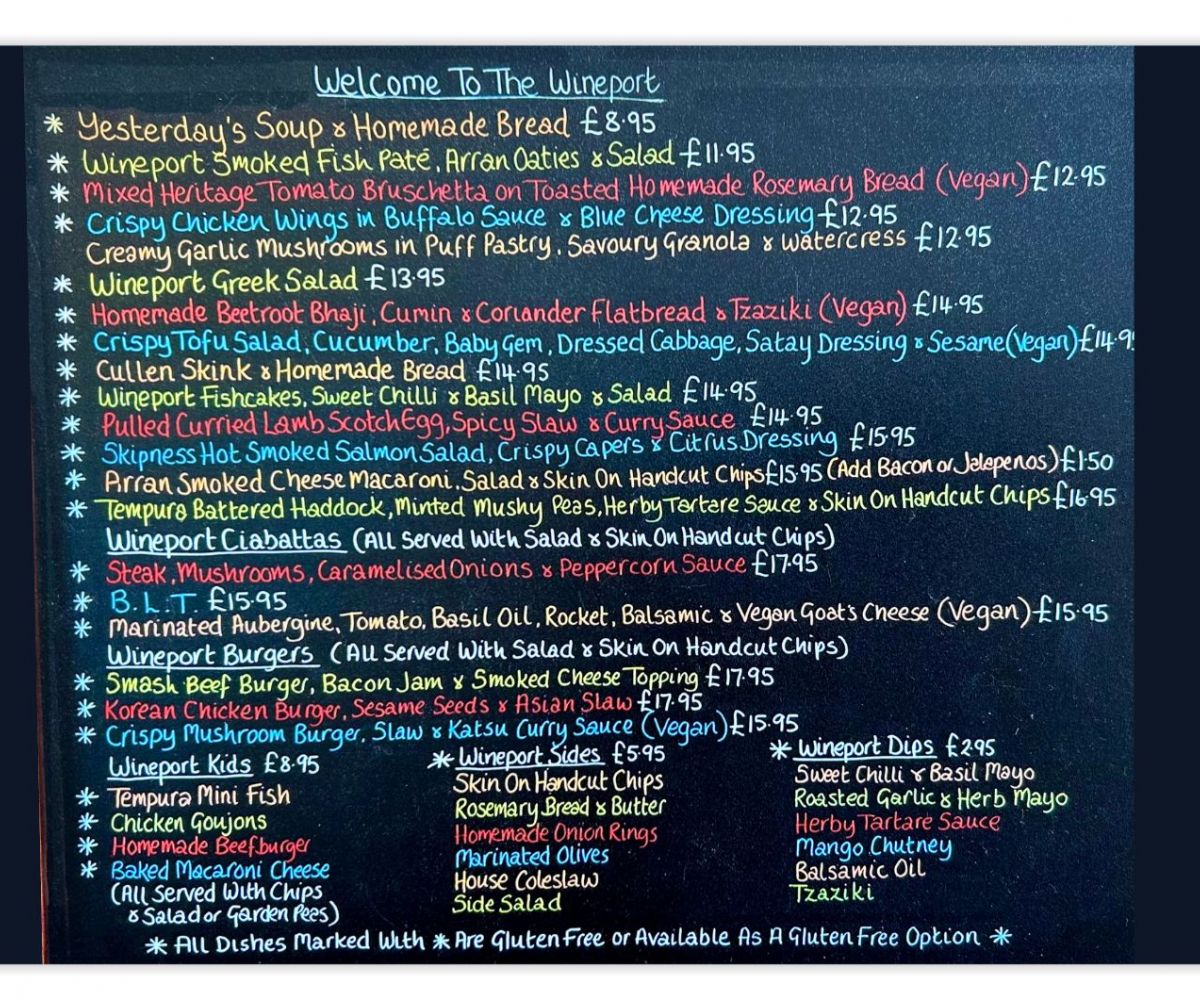 Welcome To The Wineport
* Yesterday's Soup & Homemade Bread £8.95
* Wineport Smoked Fish Paté, Arran Oaties & Salad £11.95
* Mixed Heritage Tomato Bruschetta on Toasted Homemade Rosemary Bread (Vegan) £12.95
* Crispy Chicken Wings in Buffalo Sauce & Blue Cheese Dressing £12.95
Creamy Garlic Mushrooms in Puff Pastry, Savoury Granola & Watercress £12.95
* Wineport Greek Salad £13.95
* Homemade Beetroot Bhaji, Cumin & Coriander Flatbread & Tzaziki (Vegan) £14.95
* Crispy Tofu Salad, Cucumber, Baby Gem, Dressed Cabbage, Satay Dressing & Sesame (Vegan) £14.9
* Cullen Skink & Homemade Bread £14.95
* Wineport Fishcakes, Sweet Chilli & Basil Mayo & Salad £14.95
* Pulled Curried Lamb Scotch Egg, Spicy Slaw & Curry Sauce £14.95
* Skipness Hot Smoked Salmon Salad, Crispy Capers & Citrus Dressing £15.95
* Arran Smoked Cheese Macaroni, Salad & Skin On Handcut Chips £15.95 (Add Bacon or Jalepenos) £1.50
* Tempura Battered Haddock, Minted Mushy Peas, Herby Tartare Sauce & Skin On Handcut Chips £16.95
Wineport Ciabattas (All Served With Salad & Skin On Handcut Chips)
* Steak, Mushrooms, Caramelised Onions & Peppercorn Sauce £17.95
* B.L.T. £15.95
* Marinated Aubergine, Tomato, Basil Oil, Rocket, Balsamic & Vegan Goat's Cheese (Vegan) £15.95
Wineport Burgers (All Served With Salad & Skin On Handcut Chips)
* Smash Beef Burger, Bacon Jam & Smoked Cheese Topping £17.95
* Korean Chicken Burger, Sesame Seeds & Asian Slaw £17.95
* Crispy Mushroom Burger, Slaw & Katsu Curry Sauce (Vegan) £15.95
Wineport Kids £8.95
* Tempura Mini Fish
* Chicken Goujons
* Homemade Beefburger
* Baked Macaroni Cheese
(All Served With Chips
& Salad or Garden Pees)
* Wineport Sides £5.95
Skin On Handcut Chips
Rosemary Bread & Butter
Homemade Onion Rings
Marinated Olives
House Coleslaw
Side Salad
* Wineport Dips £2.95
Sweet Chilli & Basil Mayo
Roasted Garlic & Herb Mayo
Herby Tartare Sauce
Mango Chutney
Balsamic Oil
Tzaziki
* All Dishes Marked With * Are Gluten Free or Available As A Gluten Free Option *